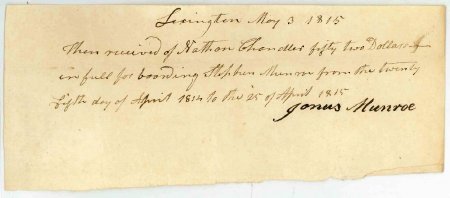 Lexington May 3 1815
Then received of Nathan Chandler fifty two Dollars
in full for boarding Stephen Munroe from the twenty
fifth day of April 1814 to the 25 of April 1815
Jonas Munroe